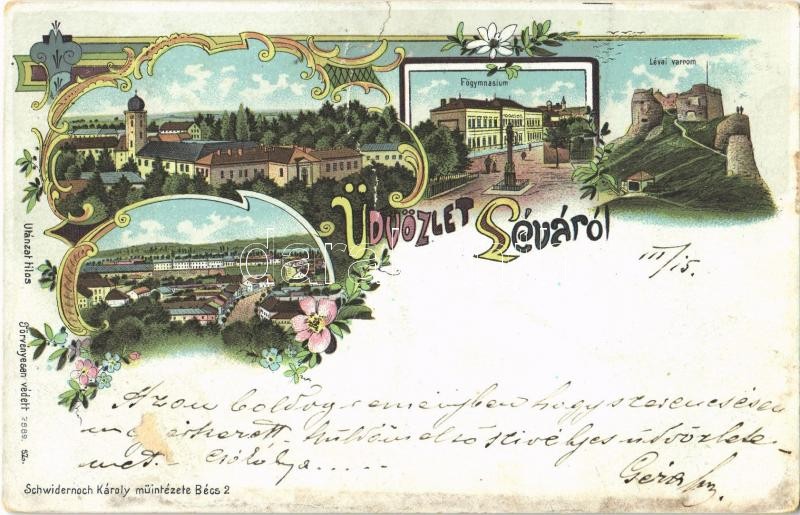 Főgymnasium
Lévai varrom
Üdvözlet Léváról
III/15.
Utánzat tilos
Törvényesen védett 2889.
darabanth
Azon boldog reményben hogy szerencsésen
meg érkezett, küldöm első szivélyes üdvözlete-
met. Csókolja.....
Géza
Schwidernoch Károly müintézete Bécs 2